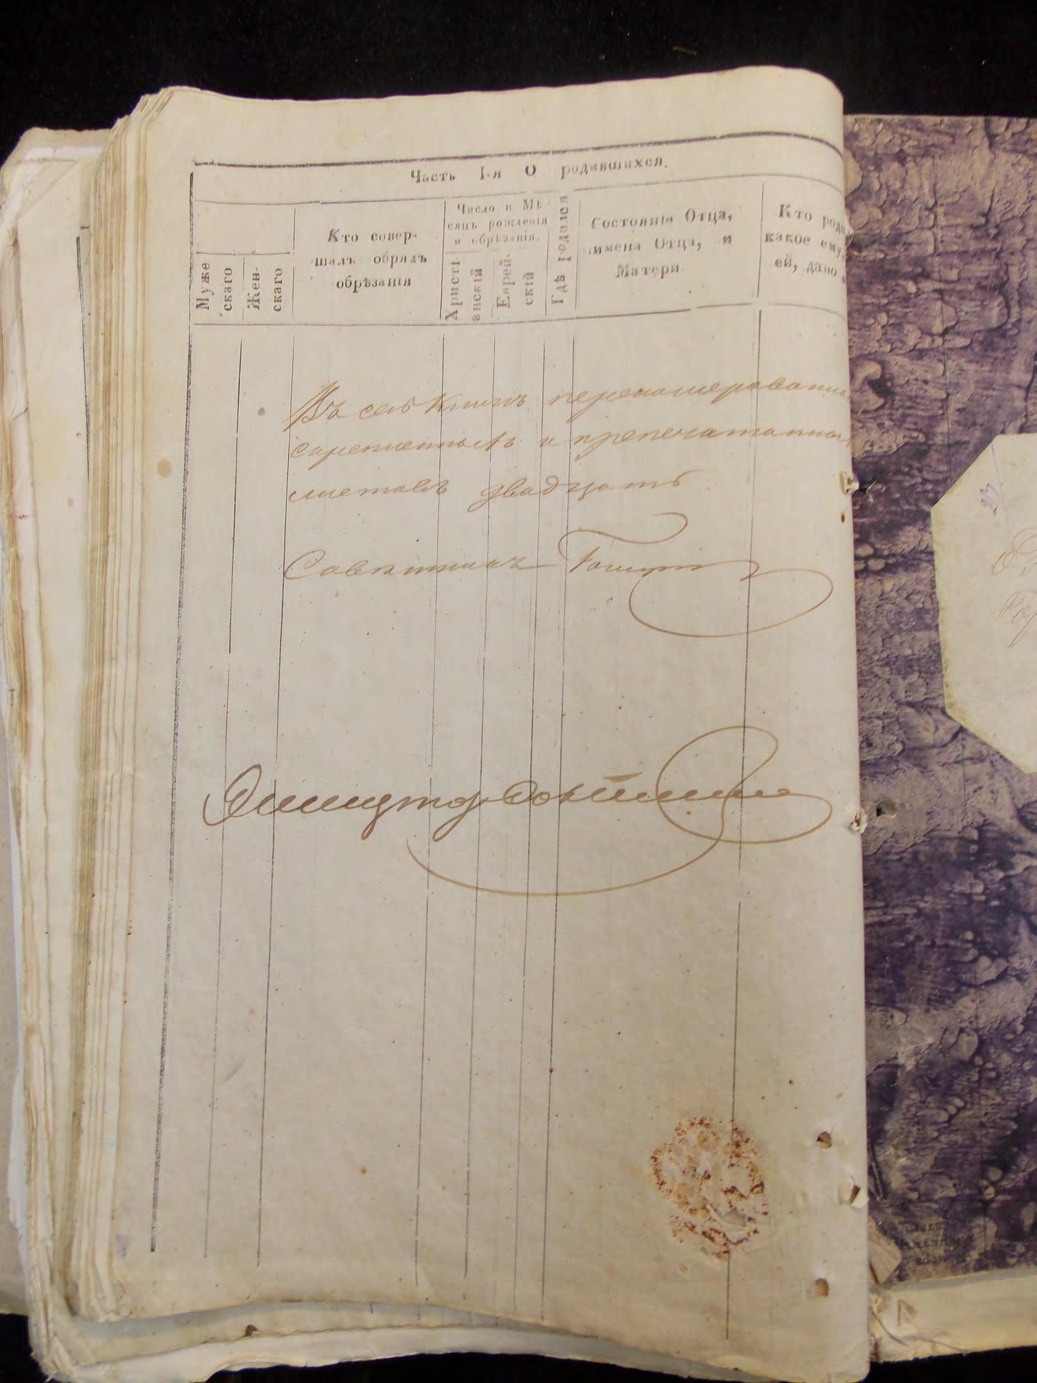 Часть I-я О родавшихся.
Муже
скаго
Жен-
скаго
Кто совер-
шалъ обрядъ
обрѣзанія
Число и Мѣ-
сяцъ рожденія
и обрѣзанія.
Христі
анскій
Еврей-
скій
Гдѣ родался
Состояніе Отца,
имена Отца, и
Матери.
Кто роди
какое ему,
ей, дано
Въ сей книгѣ перенумерованныхъ
скрепленныхъ и припечатанны
листовъ двадцать
Совѣтникъ